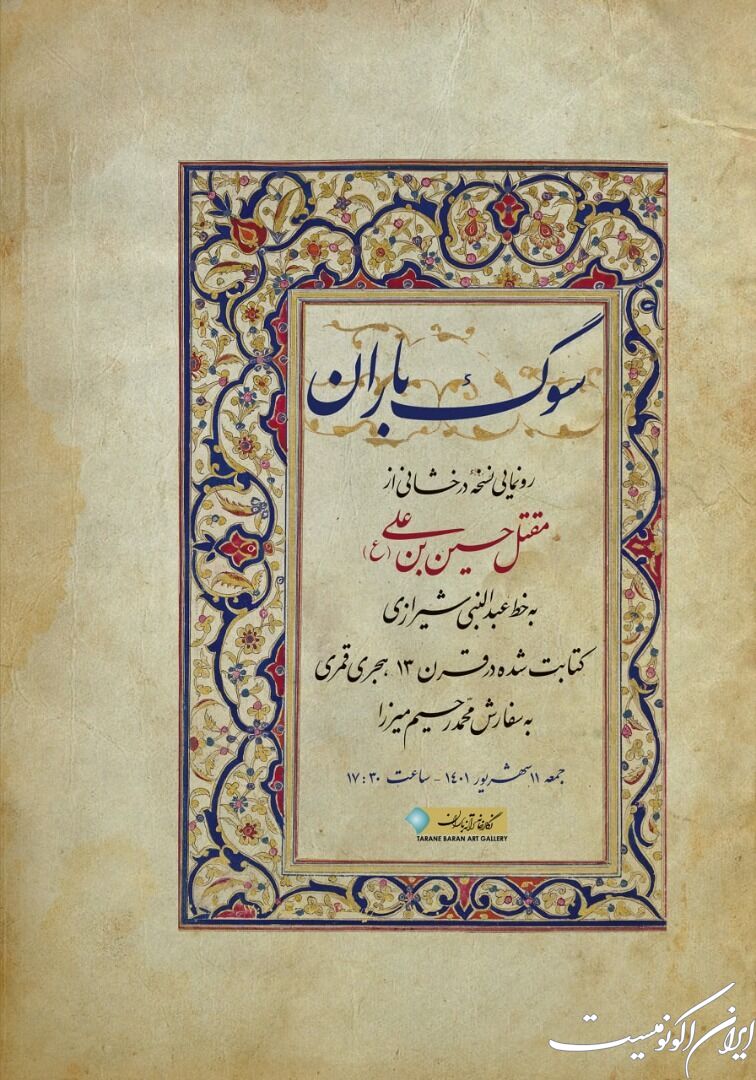 سوگ باران
رونمایی نسخهٔ درخشانی از
مقتل حسین بن علی (ع)
به خط عبدالنبی شیرازی
کتابت شده در قرن ۱۳ هجری قمری
به سفارش محمّد رحیم میرزا
جمعه ۱۱ شهریور ۱۴۰۱ - ساعت ۱۷:۳۰
TARANE BARAN ART GALLERY
ایران اکونومیست